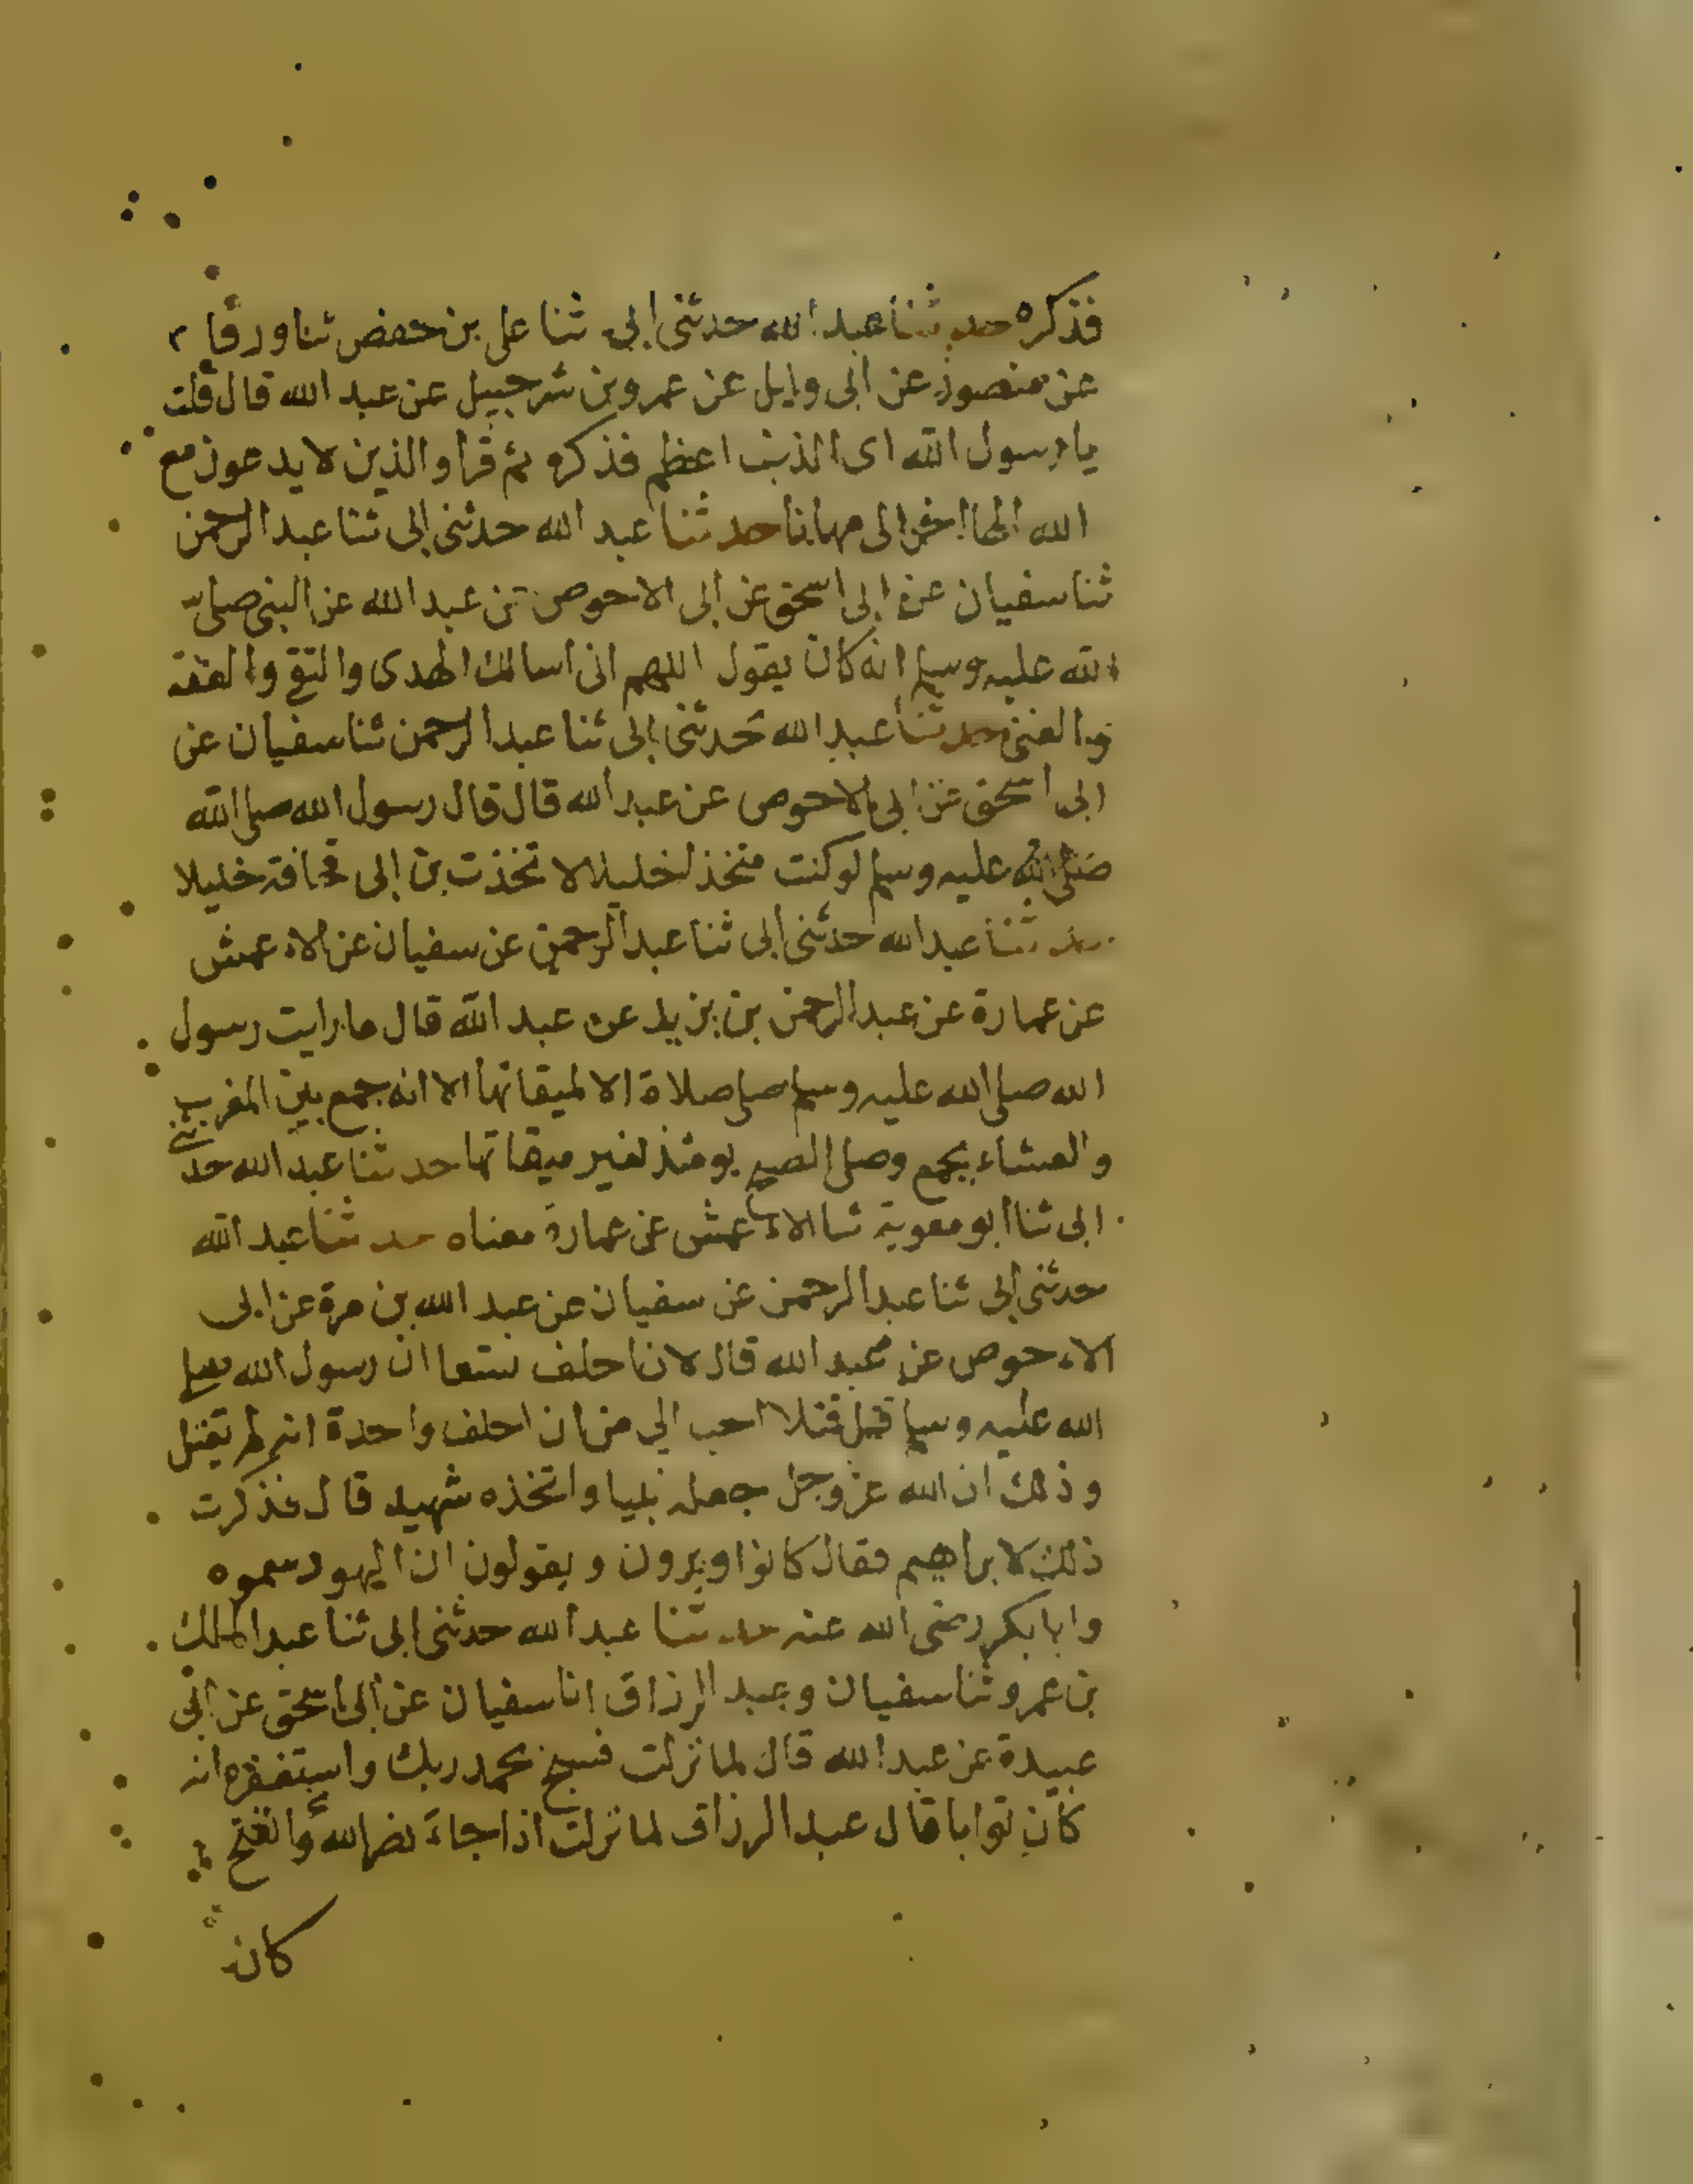 فذكره حدثنا عبد الله حدثني ابي ثنا على بن حفص ثنا ورقاء
عن منصور عن ابى وايل عن عمرو بن شرحبيل عن عبد الله قال قلت
يا رسول الله اى الذنب اعظم فذكره ثم قرا والذين لا يدعون مع
الله الها اخر الى مهانا حدثنا عبد الله حدثنى ابى ثنا عبد الرحمن
ثنا سفيان عن ابى اسحق عن ابى الاحوص عن عبد الله عن النبى صلى
الله عليه وسلم انه كان يقول اللهم انى اسالك الهدى والتقى والعفة
والغنى حدثنا عبد الله حدثنى ابى ثنا عبد الرحمن ثنا سفيان عن
ابى اسحق عن ابى الاحوص عن عبد الله قال قال رسول الله صلى الله
صلى الله عليه وسلم لو كنت متخذا خليلا لاتخذت بن ابى قحافة خليلا
حدثنا عبد الله حدثنى ابى ثنا عبد الرحمن عن سفيان عن الاعمش
عن عمارة عن عبد الرحمن بن يزيد عن عبد الله قال ما رايت رسول
الله صلى الله عليه وسلم صلى صلاة الا لميقاتها الا انه جمع بين المغرب
والعشاء بجمع وصلى الصبح يومئذ لغير ميقاتها حدثنا عبد الله حدثنى
ابى ثنا ابو معوية ثنا الاعمش عن عمارة معناه حدثنا عبد الله
حدثنى ابى ثنا عبد الرحمن عن سفيان عن عبد الله بن مرة عن ابى
الاحوص عن عبد الله قال لان احلف تسعا ان رسول الله صلى
الله عليه وسلم قتل قتلا احب الي من ان احلف واحدة انه لم يقتل
وذلك ان الله عز وجل جعله نبيا واتخذه شهيد قال فذكرت
ذلك لابراهيم فقال كانوا ويرون ويقولون ان اليهود سموه
وابا بكر رضى الله عنه حدثنا عبد الله حدثنى ابى ثنا عبد الملك
بن عمرو ثنا سفيان وعبد الرزاق انا سفيان عن ابى اسحق عن ابى
عبيدة عن عبد الله قال لما نزلت فسبح بحمد ربك واستغفره انه
كان توابا قال عبد الرزاق لما نزلت اذا جاء نصر الله والفتح
كان